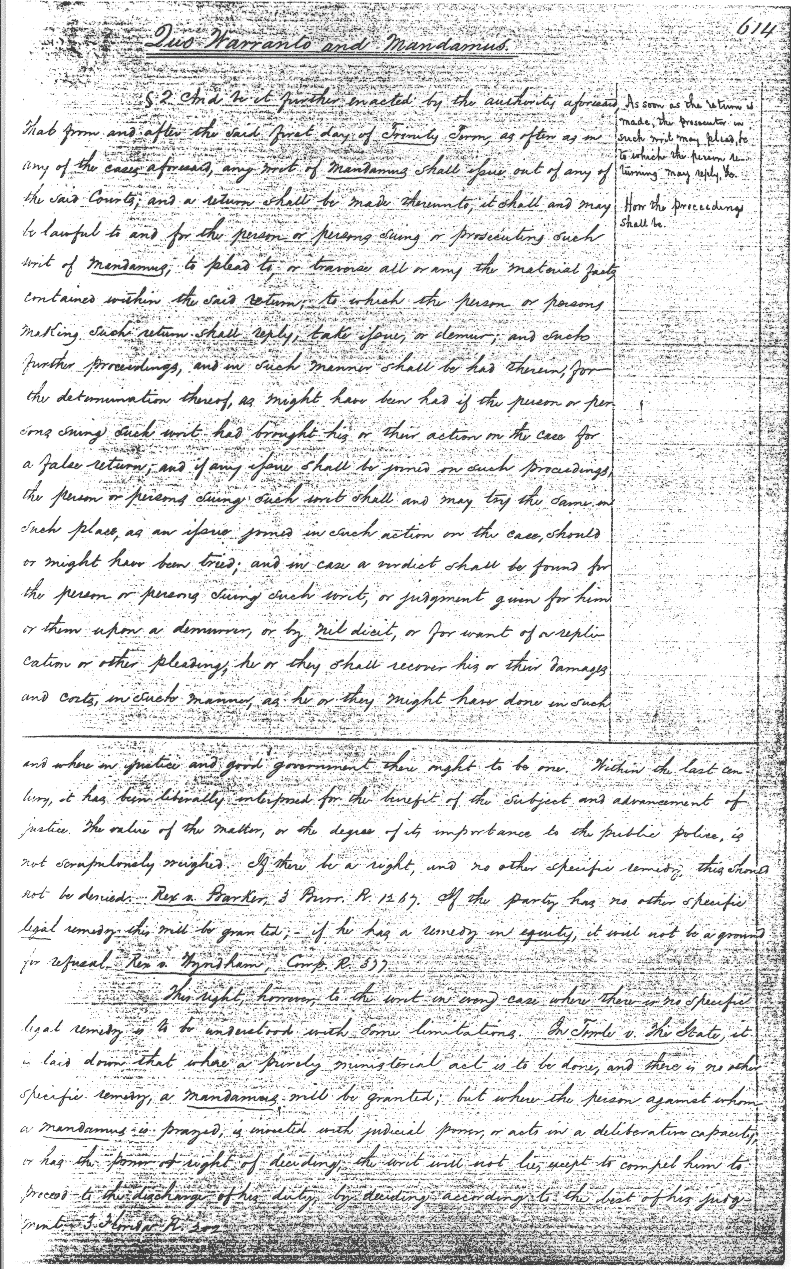 614
Quo Warranto and Mandamus.
§ 2 And be it further enacted by the authority aforesaid,
that from and after the said first day of Trinity Term, as often as in
any of the cases aforesaid, any writ of Mandamus shall issue out of any of
the said Courts, and a return shall be made thereunto, it shall and may
be lawful to and for the person or persons suing or prosecuting such
writ of Mandamus, to plead to, or traverse all or any the material facts
contained within the said return; to which the person or persons
making such return shall reply, take issue, or demur; and such
further proceedings, and in such manner shall be had therein, for
the determination thereof, as might have been had if the person or per-
sons suing such writ had brought his or their action on the case for
a false return; and if any issue shall be joined on such proceedings,
the person or persons suing such writ shall and may try the same in
such place, as an issue joined in such action on the case, should
or might have been tried; and in case a verdict shall be found for
the person or persons suing such writ, or judgment given for him
or them upon a demurrer, or by nil dicit, or for want of a repli-
cation or other pleading, he or they shall recover his or their damages
and costs, in such manner, as he or they might have done in such
As soon as the return is
made, the prosecutor in
such writ may plead, &c
to which the person re-
turning may reply, &c.
How the proceedings
shall be.
and where in justice and good government there ought to be one. Within the last cen-
tury, it has been liberally interposed for the benefit of the subject and advancement of
justice. The value of the matter, or the degree of its importance to the public police, is
not scrupulously weighed. If there be a right, and no other specific remedy, this should
not be denied. Rex v. Barker, 3 Burr. R. 1267. If the party has no other specific
legal remedy this will be granted; – if he has a remedy in equity, it will not be a ground
for refusal. Rex v. Wyndham, Cowp. R. 377
This right, however, to the writ in every case where there is no specific
legal remedy is to be understood with some limitations. In Towle v. The State, it
is laid down that where a purely ministerial act is to be done, and there is no other
specific remedy, a mandamus will be granted; but where the person against whom
a mandamus is prayed, is invested with judicial power, or acts in a deliberative capacity,
or has the power or right of deciding, the writ will not lie, except to compel him to
proceed to the discharge of his duty, by deciding according to the best of his judg-
ment. 3 Florida R.